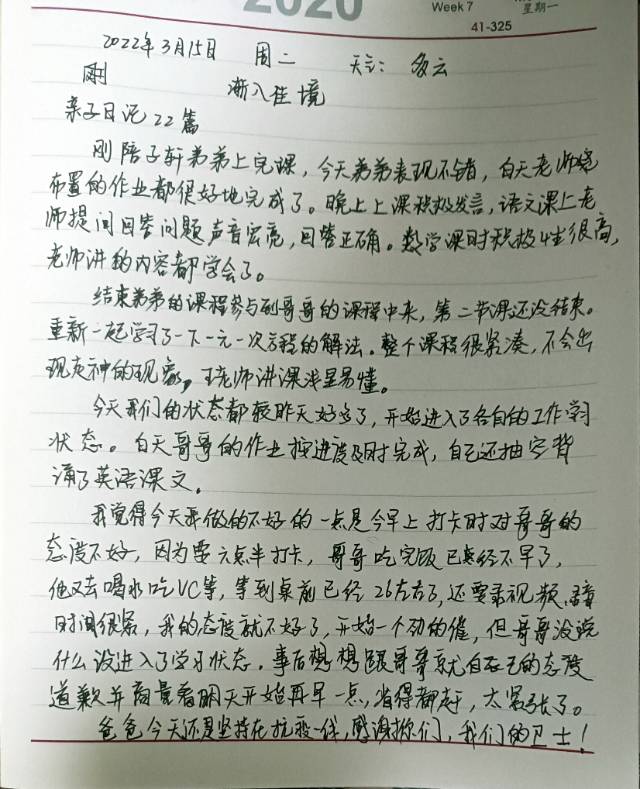 2020
Week 7
星期一
41-325
2022年3月15日 周二 天气：多云
渐入佳境
亲子日记22篇
刚陪子轩弟弟上完课，今天弟弟表现不错，白天老师
布置的作业都很好地完成了。晚上上课积极发言，语文课上老
师提问回答问题声音宏亮，回答正确。数学课时积极性很高，
老师讲的内容都学会了。
结束弟弟的课程参与到哥哥的课程中来，第二节课还没结束。
重新一起学习了一下一元一次方程的解法。整个课程很紧凑，不会出
现走神的现象，王老师讲课浅显易懂。
今天哥们的状态都较昨天好多了，开始进入了各自的工作学习
状态。白天哥哥的作业按进度及时完成，自己还抽空背
诵了英语课文。
我觉得今天我做的不好的一点是今早上打卡时对哥哥的
态度不好，因为要六点半打卡，哥哥吃完饭已经不早了，
他又去喝水吃VC等，等到桌前已经26左右了，还要录视频，
时间很紧，我的态度就不好了，开始一个劲的催，但哥哥没说
什么没进入了学习状态。事后想想跟哥哥就自己的态度
道歉并商量着明天开始再早一点，省得都赶，太紧张了。
爸爸今天还是坚持在抗疫一线，感谢你们，我们的卫士！